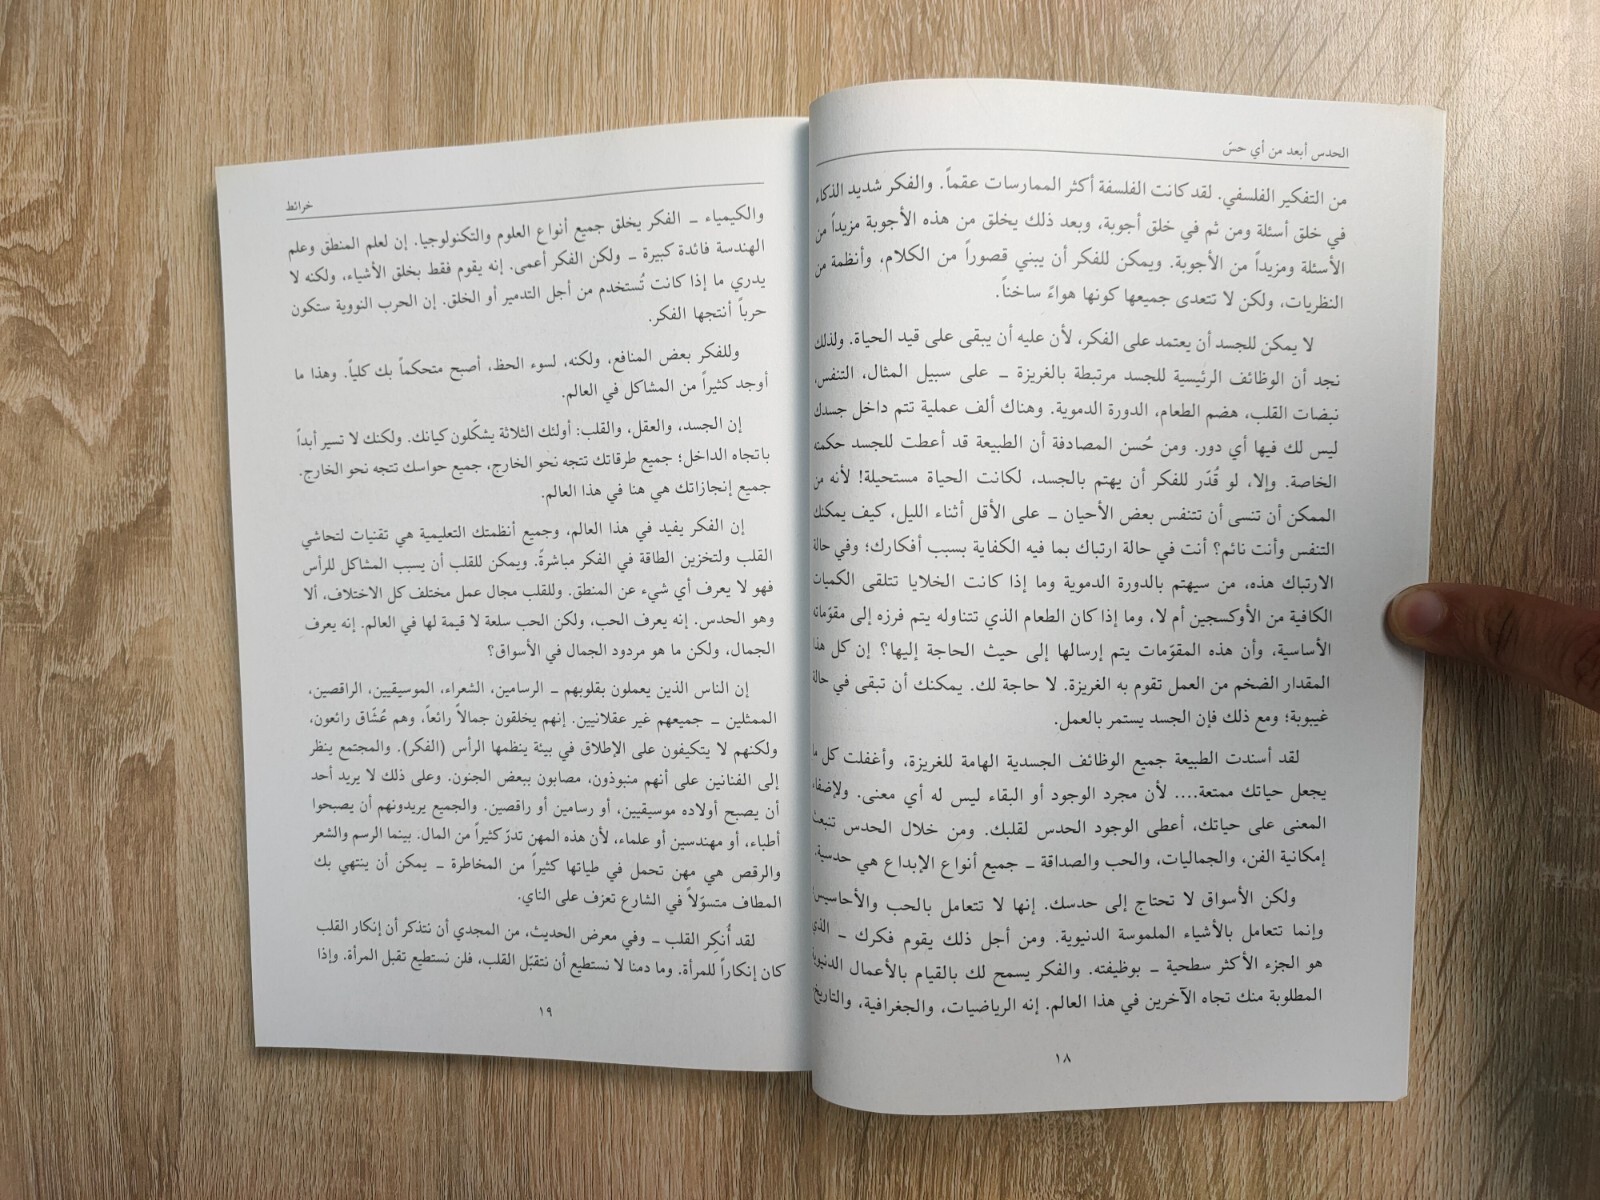 الحدس أبعد من أي حسّ
من التفكير الفلسفي. لقد كانت الفلسفة أكثر الممارسات عقماً. والفكر شديد الذكاء
في خلق أسئلة ومن ثم في خلق أجوبة، وبعد ذلك يخلق من هذه الأجوبة مزيداً من
الأسئلة ومزيداً من الأجوبة. ويمكن للفكر أن يبني قصوراً من الكلام، وأنظمة من
النظريات، ولكن لا تتعدى جميعها كونها هواءً ساخناً.
لا يمكن للجسد أن يعتمد على الفكر، لأن عليه أن يبقى على قيد الحياة. ولذلك
نجد أن الوظائف الرئيسية للجسد مرتبطة بالغريزة – على سبيل المثال، التنفس،
نبضات القلب، هضم الطعام، الدورة الدموية. وهناك ألف عملية تتم داخل جسدك
ليس لك فيها أي دور. ومن حُسن المصادفة أن الطبيعة قد أعطت للجسد حكمته
الخاصة. وإلا، لو قُدّر للفكر أن يهتم بالجسد، لكانت الحياة مستحيلة! لأنه من
الممكن أن تنسى أن تتنفس بعض الأحيان – على الأقل أثناء الليل، كيف يمكنك
التنفس وأنت نائم؟ أنت في حالة ارتباك بما فيه الكفاية بسبب أفكارك؛ وفي حالة
الارتباك هذه، من سيهتم بالدورة الدموية وما إذا كانت الخلايا تتلقى الكميات
الكافية من الأوكسجين أم لا، وما إذا كان الطعام الذي تتناوله يتم فرزه إلى مقوّماته
الأساسية، وأن هذه المقوّمات يتم إرسالها إلى حيث الحاجة إليها؟ إن كل هذا
المقدار الضخم من العمل تقوم به الغريزة. لا حاجة لك. يمكنك أن تبقى في حالة
غيبوبة؛ ومع ذلك فإن الجسد يستمر بالعمل.
لقد أسندت الطبيعة جميع الوظائف الجسدية الهامة للغريزة، وأغفلت كل ما
يجعل حياتك ممتعة.... لأن مجرد الوجود أو البقاء ليس له أي معنى. ولإضفاء
المعنى على حياتك، أعطى الوجود الحدس لقلبك. ومن خلال الحدس تنبعث
إمكانية الفن، والجماليات، والحب والصداقة – جميع أنواع الإبداع هي حدسية.
ولكن الأسواق لا تحتاج إلى حدسك. إنها لا تتعامل بالحب والأحاسيس
وإنما تتعامل بالأشياء الملموسة الدنيوية. ومن أجل ذلك يقوم فكرك – الذي
هو الجزء الأكثر سطحية – بوظيفته. والفكر يسمح لك بالقيام بالأعمال الدنيوية
المطلوبة منك تجاه الآخرين في هذا العالم. إنه الرياضيات، والجغرافية، والتاريخ
١٨
خرائط
والكيمياء – الفكر يخلق جميع أنواع العلوم والتكنولوجيا. إن لعلم المنطق وعلم
الهندسة فائدة كبيرة – ولكن الفكر أعمى. إنه يقوم فقط بخلق الأشياء، ولكنه لا
يدري ما إذا كانت تُستخدم من أجل التدمير أو الخلق. إن الحرب النووية ستكون
حرباً أنتجها الفكر.
وللفكر بعض المنافع، ولكنه، لسوء الحظ، أصبح متحكماً بك كلياً. وهذا ما
أوجد كثيراً من المشاكل في العالم.
إن الجسد، والعقل، والقلب: أولئك الثلاثة يشكّلون كيانك. ولكنك لا تسير أبداً
باتجاه الداخل؛ جميع طرقاتك تتجه نحو الخارج، جميع حواسك تتجه نحو الخارج.
جميع إنجازاتك هي هنا في هذا العالم.
إن الفكر يفيد في هذا العالم، وجميع أنظمتك التعليمية هي تقنيات لتحاشي
القلب ولتخزين الطاقة في الفكر مباشرةً. ويمكن للقلب أن يسبب المشاكل للرأس
فهو لا يعرف أي شيء عن المنطق. وللقلب مجال عمل مختلف كل الاختلاف، ألا
وهو الحدس. إنه يعرف الحب، ولكن الحب سلعة لا قيمة لها في العالم. إنه يعرف
الجمال، ولكن ما هو مردود الجمال في الأسواق؟
إن الناس الذين يعملون بقلوبهم – الرسامين، الشعراء، الموسيقيين، الراقصين،
الممثلين – جميعهم غير عقلانيين. إنهم يخلقون جمالاً رائعاً، وهم عُشّاق رائعون،
ولكنهم لا يتكيفون على الإطلاق في بيئة ينظمها الرأس (الفكر). والمجتمع ينظر
إلى الفنانين على أنهم منبوذون، مصابون ببعض الجنون. وعلى ذلك لا يريد أحد
أن يصبح أولاده موسيقيين، أو رسامين أو راقصين. والجميع يريدونهم أن يصبحوا
أطباء، أو مهندسين أو علماء، لأن هذه المهن تدرّ كثيراً من المال. بينما الرسم والشعر
والرقص هي مهن تحمل في طياتها كثيراً من المخاطرة – يمكن أن ينتهي بك
المطاف متسوّلاً في الشارع تعزف على الناي.
لقد أُنكِر القلب – وفي معرض الحديث، من المجدي أن نتذكر أن إنكار القلب
كان إنكاراً للمرأة. وما دمنا لا نستطيع أن نتقبّل القلب، فلن نستطيع تقبل المرأة. وإذا
١٩